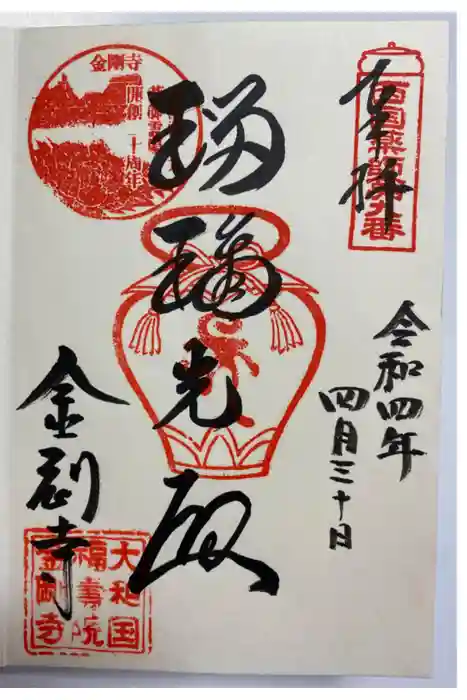 奉拝
西国薬師第九番
令和四年
四月三十日
瑠璃光殿
金剛寺
開創
十周年
金剛寺
大和国
福壽院
金剛寺